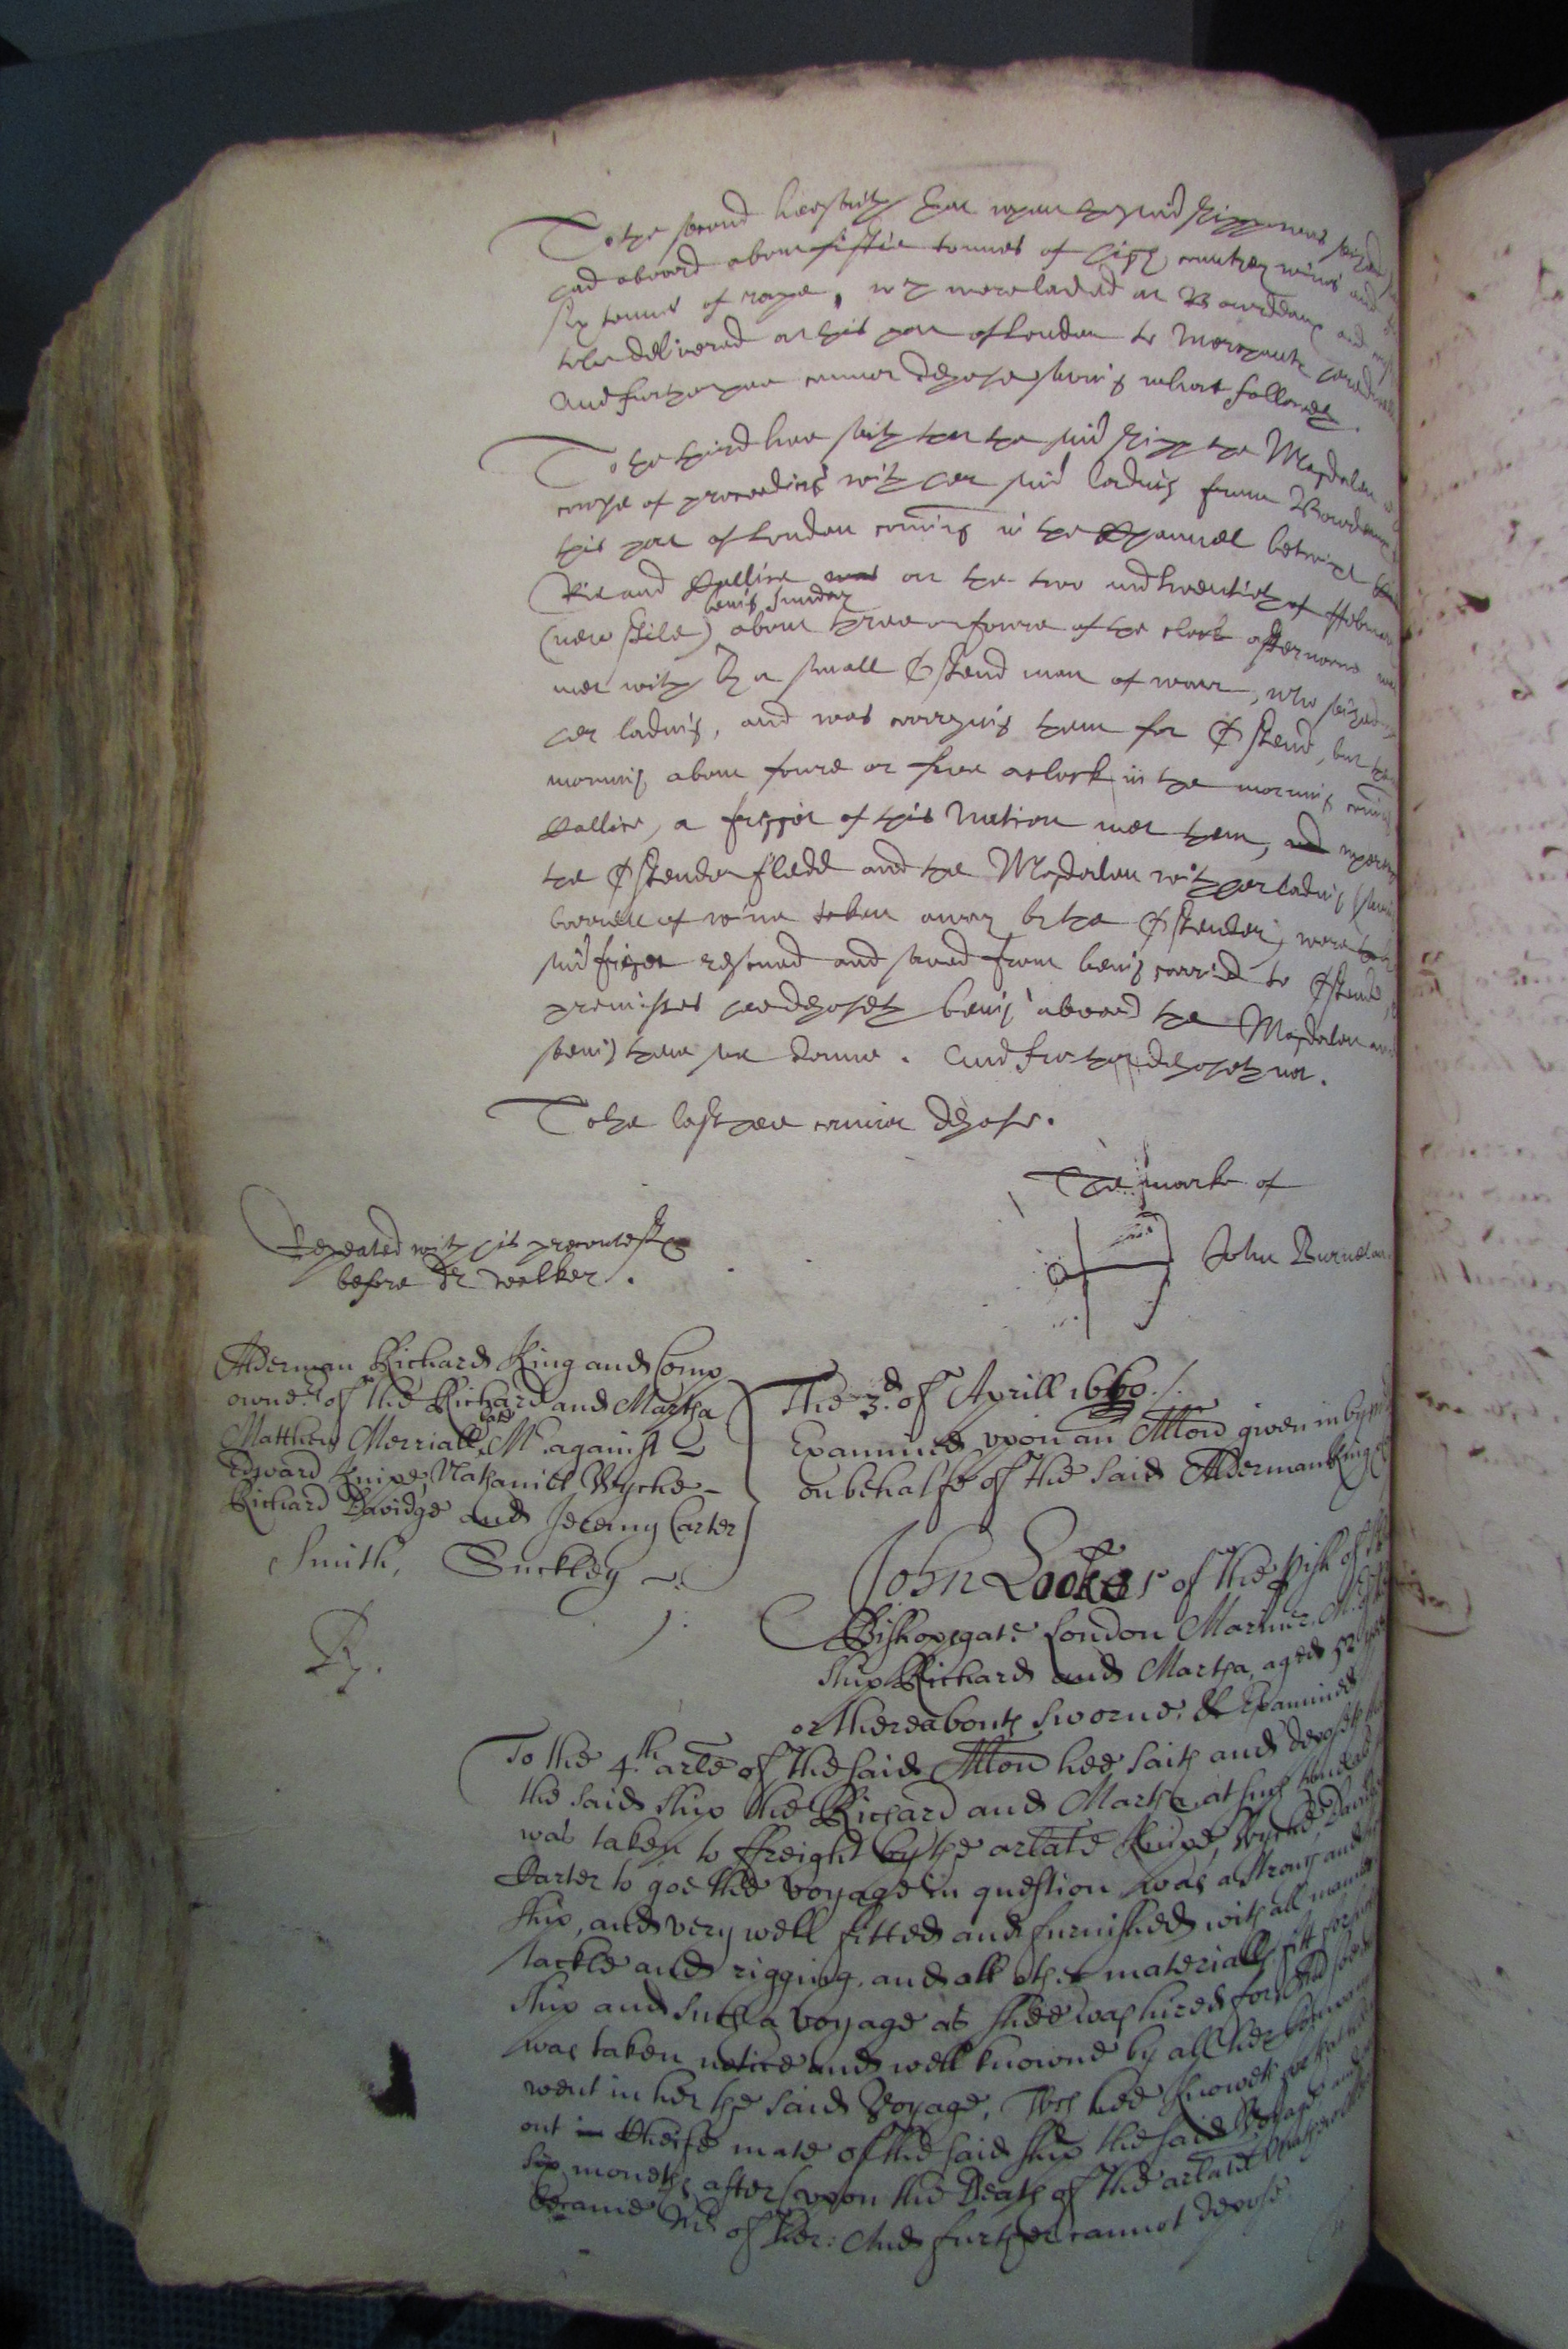 To the second hee saith that upon the said shipp was seized shee
had aboard about fiftie tonnes of high countrey wines and
six tonnes of rape, wch were laded at Bourdeaux and
to be delivered at this port of London to Merchants here
And further hee cannot depose saving what followeth.
To the third hee saith that the said shipp the Magdalen in
course of proceeding with her said lading from Bourdeaux
this port of London coming in the Channel betwixt
Rie and Callice was on the two and twentieth of ffebruary
being Sunday
(new stile) about three or foure of the clock afternoone
met with by a small Ostend man of warr, who seized
her lading, and was carrying them for Ostend, but the
morning about foure or five aclock in the morning
Callice, a friggot of this Nation met them, and upon
the Ostender fledd and the Magdalen with her lading (saving
barrell of wine taken away by the Ostender) were by
said frigot rescued and saved from being carried to Ostend,
premisses hee deposeth being aboard the Magdalen and
seeing them soe donne. And further deposeth not.
To the last hee cannot depose.
The marke of
John Burnel
Repeated with his precontest
before Dr Walker.
Alderman Richard King and Comp
owners of the Richard and Martha
late
Matthew Merriall Mr. against
Edward Knipe, Nathaniell Wyche
Richard Davidge and Jeremy Carter
Smith, Suckley
The 3d. of Aprill 1660./.
Examined upon an Allon given in by
on behalfe of the said Alderman King
Rp.
John Looker of the pish of
Bishopsgate London Mariner, Mr. of the
shipp Richard and Martha, aged 52 yeares
or thereabouts sworne & Examined
To the 4th. arle of the said Allon hee saith and deposeth
the said ship the Richard and Martha at such time as
was taken to ffreight by the arlate Knipe, Wyche, Davidge
Carter to goe the voyage in question was a strong and
ship, and very well fitted and furnished with all manner
tackle and rigging, and all other materialls fitt for such
ship and such a voyage as shee was hired for, And soe
was taken notice and well knowne by all her company
went in her the said Voyage, Wch hee knoweth for that hee
out in cheife mate of the said ship the said Voyage, and
six moneths after (upon the Death of the arlate
became Mr of her: And further cannot depose